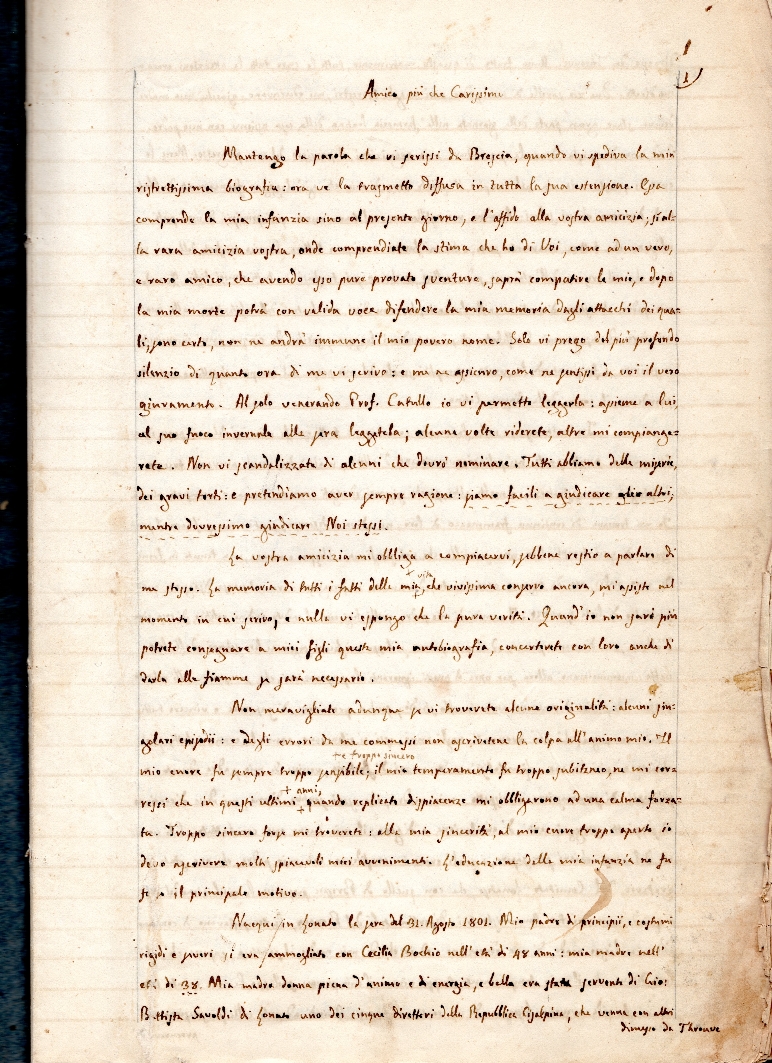 1
Amico più che Carissimo
Mantengo la parola che vi scrissi da Brescia, quando vi spediva la mia
ristrettissima biografia: ora ve la trasmetto diffusa in tutta la sua estensione. Essa
comprende la mia infanzia sino al presente giorno, e l'affido alla vostra amicizia; sì al-
la rara amicizia vostra, onde comprendiate la stima che ho di Voi, come ad un vero,
e raro amico, che avendo esso pure provato sventure, saprà compatire le mie, e dopo
la mia morte potrà con valida voce difendere la mia memoria dagli attacchi dei qua=
li, sono certo, non ne andrà immune il mio povero nome. Solo vi prego del più profondo
silenzio di quanto ora di me vi scrivo: e me ne assicuro, come ne sentissi da voi il vero
giuramento. Al solo venerando Prof. Catullo io vi permetto leggerla: assieme a lui,
al suo fuoco invernale alla sera leggetela; alcune volte riderete, altre mi compiange=
rete. Non vi scandalizzate di alcuni che dovrò nominare. Tutti abbiamo delle miserie,
dei gravi torti: e pretendiamo aver sempre ragione: siamo facili a giudicare gli altri,
mentre dovressimo giudicare Noi stessi.
La vostra amicizia mi obbliga a compiacervi, sebbene restio a parlare di
me stesso. La memoria di tutti i fatti della mia + vita, che vivissima conservo ancora, mi assiste nel
momento in cui scrivo, e nulla vi espongo che la pura verità. Quand'io non sarò più
potrete consegnare a miei figli questa mia autobiografia, concerterete con loro anche di
darla alle fiamme se sarà necessario.
Non maravigliate adunque se vi troverete alcune originalità: alcuni sin-
golari episodii: e degli errori da me commessi non ascrivetene la colpa all'animo mio. Il
mio cuore fu sempre troppo sensibile, + e troppo sincero; il mio temperamento fu troppo subitaneo, ne mi cor=
ressi che in questi ultimi + anni, quando replicate dispiacenze mi obbligarono ad una calma forza=
ta. Troppo sincero forse mi troverete: alla mia sincerità, al mio cuore troppo aperto io
devo ascrivere molti spiacevoli miei avvenimenti. L'educazione della mia infanzia ne fu
forse il principale motivo.
Nacqui in Lonato la sera del 31. Agosto 1801. Mio padre di principii, e costumi
rigidi e severi si era ammogliato con Cecilia Bochio nell'età di 48 anni: mia madre nell'
età di 38. Mia madre donna piena d'animo e di energia, e bella era stata servente di Gio:
Battista Savoldi di Lonato uno dei cinque direttori della Repubblica Cisalpina, che venne con altri
dimesso da Throuve